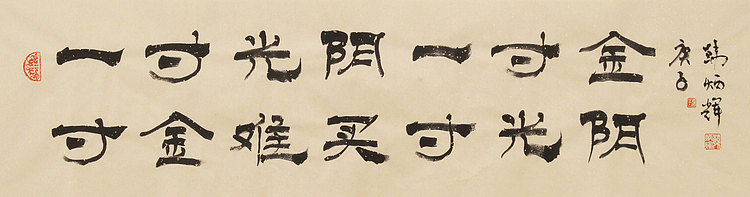 一寸光阴一寸金
寸金难买寸光阴
韓炳輝
庚子